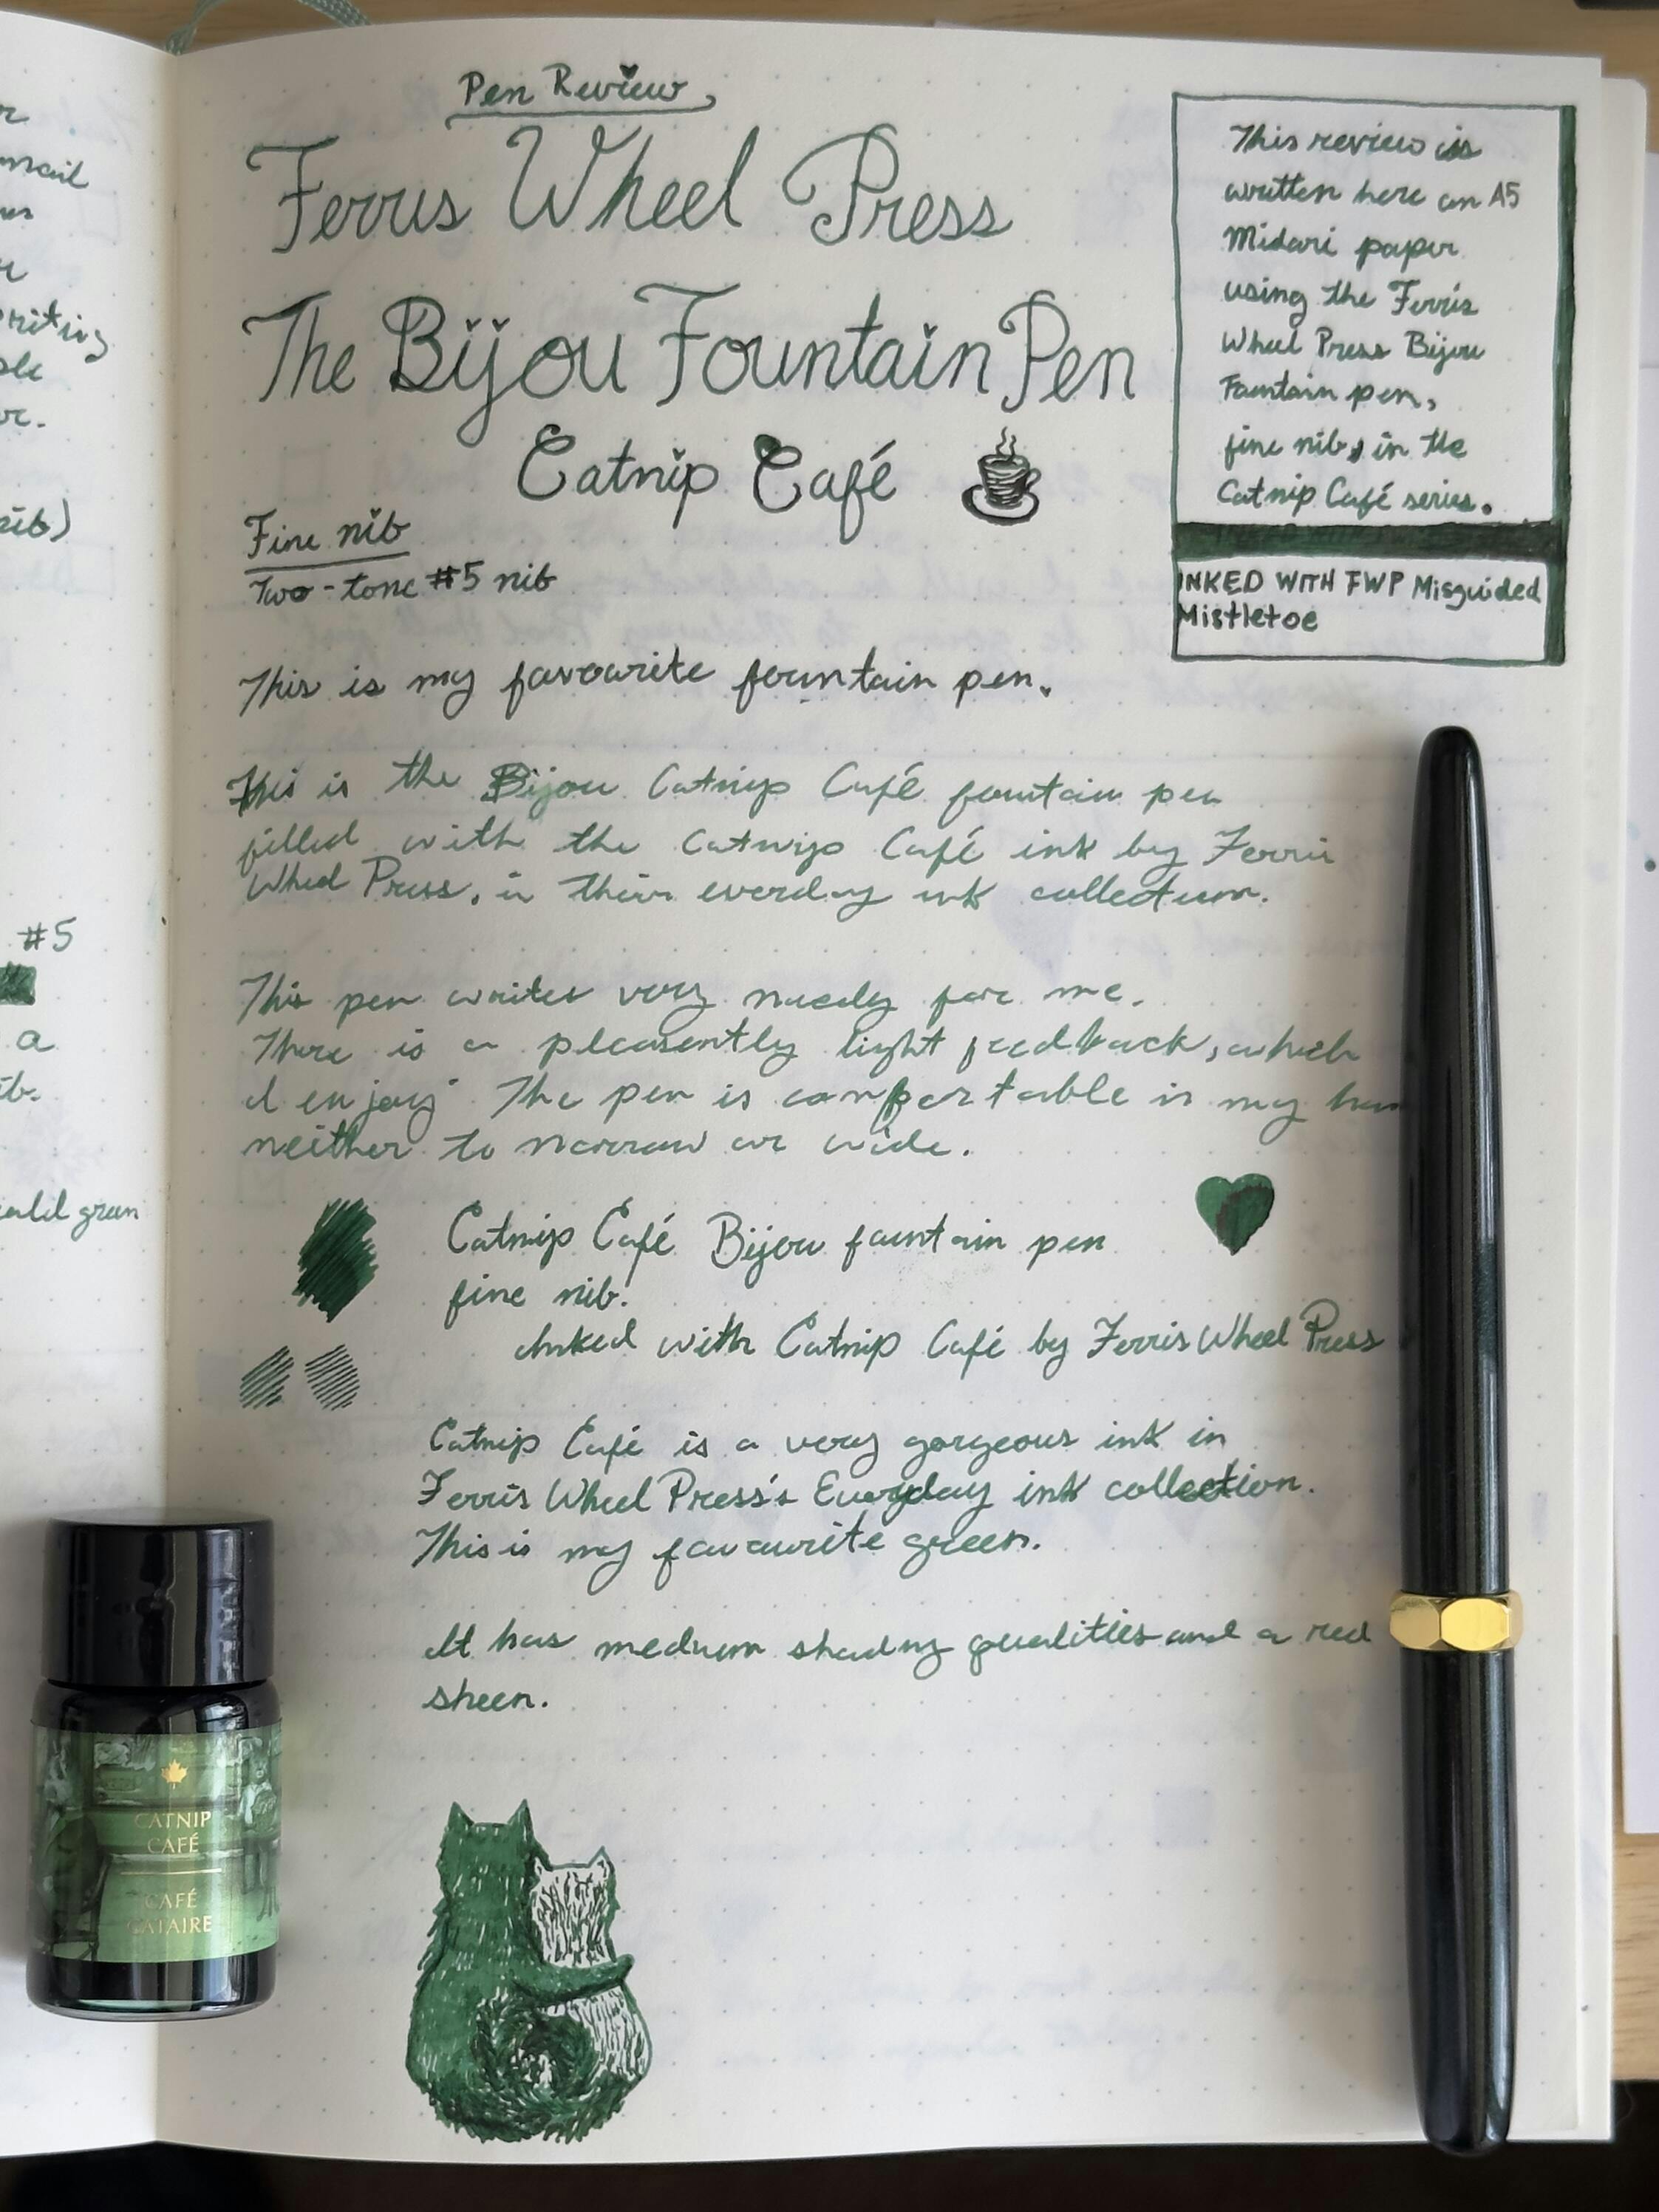 Pen Review
Ferris Wheel Press
The Bijou Fountain Pen
Catnip Café
Fine nib
Two-tone #5 nib
This review is
written here on A5
Midori paper
using the Ferris
Wheel Press Bijou
Fountain pen,
fine nib, in the
Catnip Café series.
INKED WITH FWP Misguided
Mistletoe
This is my favourite fountain pen.
This is the Bijou Catnip Café fountain pen
filled with the Catnip Café ink by Ferris
Wheel Press, in their everday ink collection.
This pen writes very nicely for me.
There is a pleasently light feedback, which
I enjoy. The pen is comfortable in my
neither to narrow or wide.
Catnip Café Bijou fountain pen
fine nib.
Inked with Catnip Café by Ferris Wheel Press
Catnip Café is a very gorgeous ink in
Ferris Wheel Press's Everyday ink collection.
This is my favourite green.
It has medium shading qualities and a red
sheen.
CATNIP
CAFÉ
CAFÉ
CATAIRE
mail
#5
a
nib)